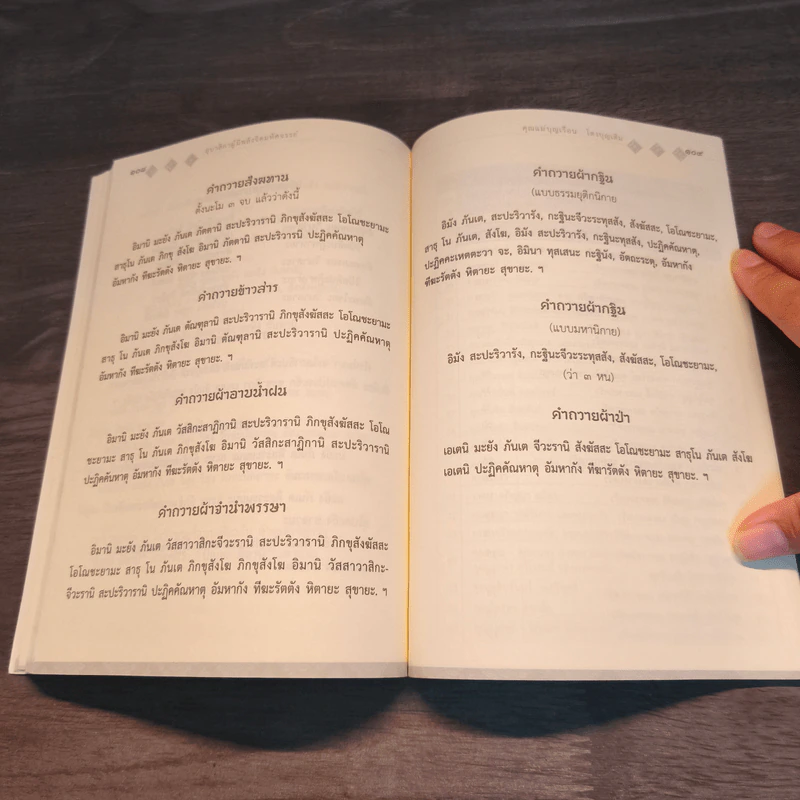 ๑๐๘
คำถวายสังฆทาน
ตั้งนะโม ๓ จบ แล้วว่าดังนี้
อิมานิ มะยัง ภันเต ภัตตานิ สะปะริวารานิ ภิกขุสังฆัสสะ โอโณชะยามะ
สาธุโน ภันเต ภิกขุ สังโฆ อิมานิ ภัตตานิ สะปะริวารานิ ปะฏิคคัณหาตุ
อัมหากัง ทีฆะรัตตัง หิตายะ สุขายะ. ฯ
คำถวายข้าวสาร
อิมานิ มะยัง ภันเต ตัณฑุลานิ สะปะริวารานิ ภิกขุสังฆัสสะ โอโณชะยามะ
สาธุ โน ภันเต ภิกขุสังโฆ อิมานิ ตัณฑุลานิ สะปะริวารานิ ปะฏิคคัณหาตุ
อัมหากัง ทีฆะรัตตัง หิตายะ สุขายะ. ฯ
คำถวายผ้าอาบน้ำฝน
อิมานิ มะยัง ภันเต วัสสิกะสาฏิกานิ สะปะริวารานิ ภิกขุสังฆัสสะ โอโณ
ชะยามะ สาธุ โน ภันเต ภิกขุสังโฆ อิมานิ วัสสิกะสาฏิกานิ สะปะริวารานิ
ปะฏิคคัณหาตุ อัมหากัง ทีฆะรัตตัง หิตายะ สุขายะ. ฯ
คำถวายผ้าจำนำพรรษา
อิมานิ มะยัง ภันเต วัสสาวาสิกะจีวะรานิ สะปะริวารานิ ภิกขุสังฆัสสะ
โอโณชะยามะ สาธุ โน ภันเต ภิกขุสังโฆ ภิกขุสังโฆ อิมานิ วัสสาวาสิกะ-
จีวะรานิ สะปะริวารานิ ปะฏิคคัณหาตุ อัมหากัง ทีฆะรัตตัง หิตายะ สุขายะ. ฯ
คุณแม่บุญเรือน โตงบุญเติม
๑๐๙
คำถวายผ้ากฐิน
(แบบธรรมยุติกนิกาย
อิมัง ภันเต, สะปะริวารัง, กะฐินะจีวะระทุสสัง, สังฆัสสะ, โอโณชะยามะ,
สาธุ โน ภันเต, สังโฆ, อิมัง สะปะริวารัง, กะฐินะทุสสัง, ปะฏิคคัณหาตุ,
ปะฏิคคะเหตตะวา จะ, อิมินา ทุสเสนะ กะฐินัง, อัตถะระตุ, อัมหากัง
ทีฆะรัตตัง หิตายะ สุขายะ. ฯ
คำถวายผ้ากฐิน
(แบบมหานิกาย)
อิมัง สะปะริวารัง, กะฐินะจีวะระทุสสัง, สังฆัสสะ, โอโณชะยามะ,
(ว่า ๓ หน)
คำถวายผ้าป่า
เอเตนิ มะยัง ภันเต จีวะรานิ สังฆัสสะ โอโณชะยามะ สาธุโน ภันเต สังโฆ
เอเตนิ ปะฏิคคัณหาตุ อัมหากัง ทีฆารัตตัง หิตายะ สุขายะ. ฯ